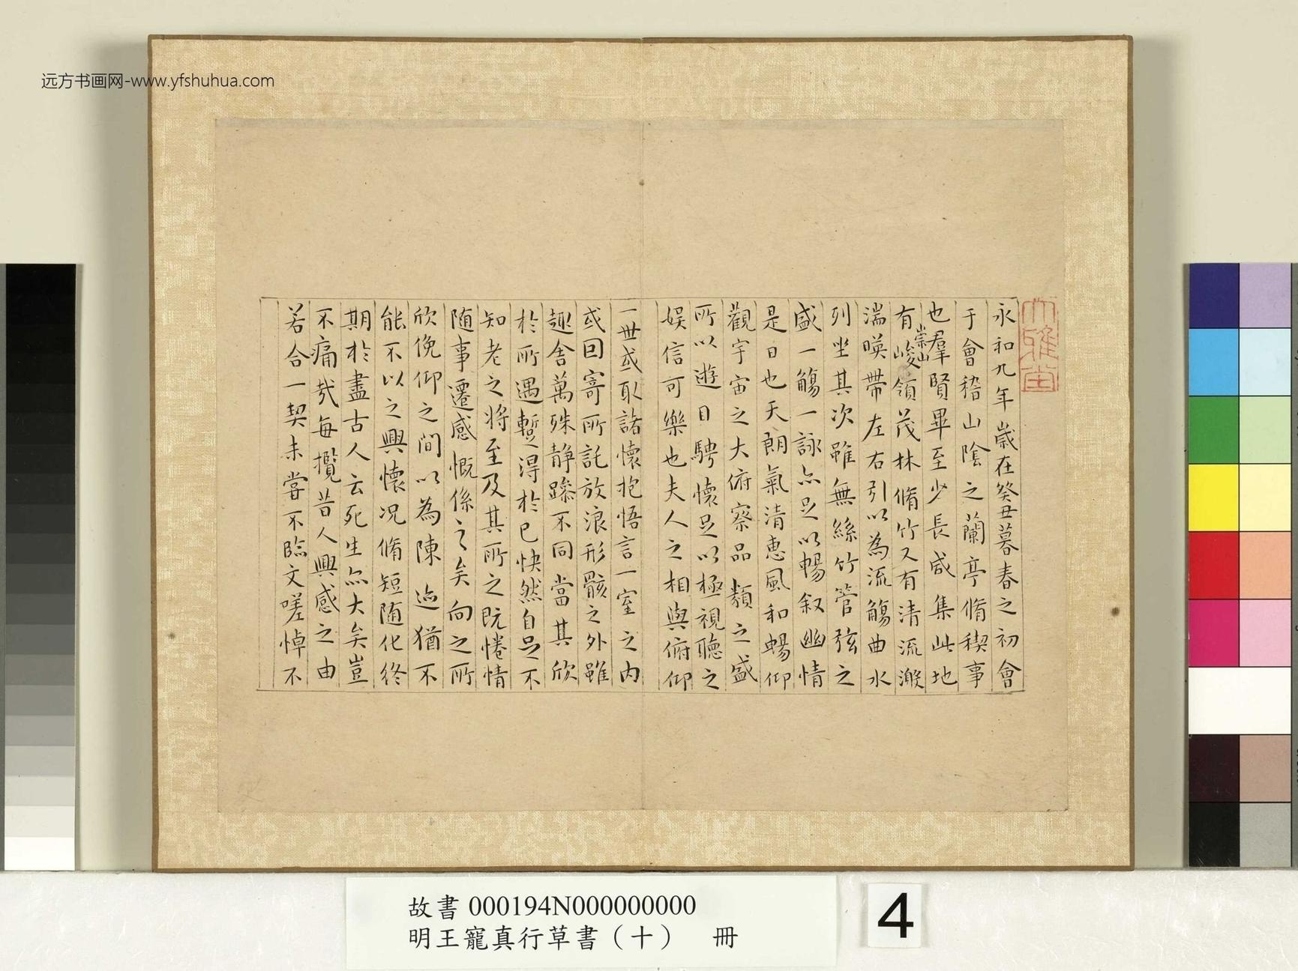 远方书画网-www.yfshuhua.com
大雅堂
永和九年歲在癸丑暮春之初會
于會稽山陰之蘭亭脩稧事
也羣賢畢至少長咸集此地
有崇山峻領茂林脩竹又有清流激
湍暎帶左右引以為流觴曲水
列坐其次雖無絲竹管弦之
盛一觴一詠亦足以暢叙幽情
是日也天朗氣清惠風和暢仰
觀宇宙之大俯察品類之盛
所以遊目騁懷足以極視聽之
娛信可樂也夫人之相與俯仰
一世或取諸懷抱悟言一室之內
或因寄所託放浪形骸之外雖
趣舍萬殊靜躁不同當其欣
於所遇暫得於己快然自足不
知老之將至及其所之既惓情
隨事遷感慨係之矣向之所
欣俛仰之間以為陳迹猶不
能不以之興懷況脩短隨化終
期於盡古人云死生亦大矣豈
不痛哉每攬昔人興感之由
若合一契未嘗不臨文嗟悼不
故書 000194N000000000
明王寵真行草書（十） 冊
4